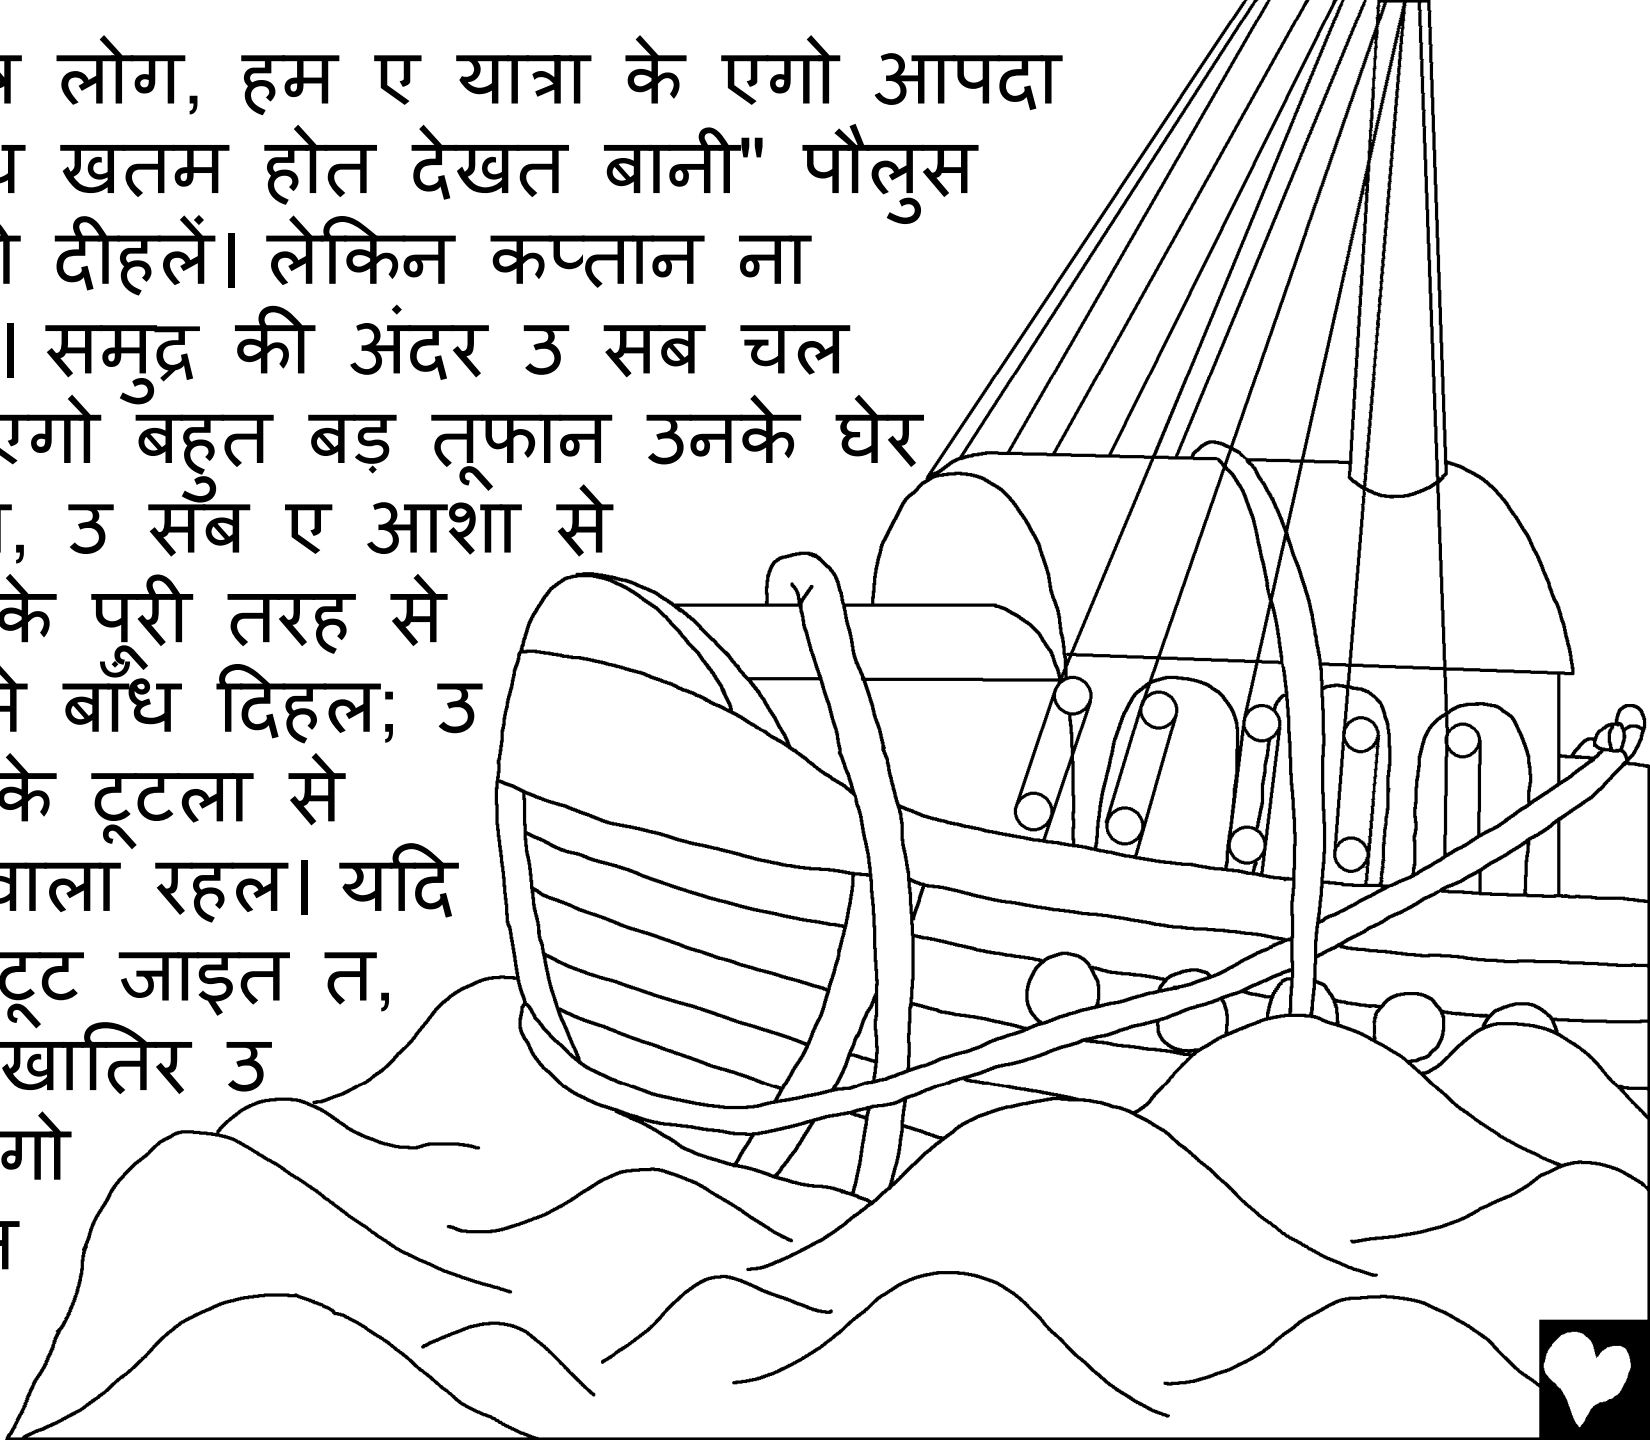 लोग, हम ए यात्रा के एगो आपदा
खतम होत देखत बानी" पौलुस
दीहलें। लेकिन कप्तान ना
। समुद्र की अंदर उ सब चल
एगो बहुत बड़ तूफान उनके घेर
, उ सब ए आशा से
के पुरी तरह से
बाँध दिहल; उ
के टूटला से
वाला रहल। यदि
टूट जाइत त,
खातिर उ
गो